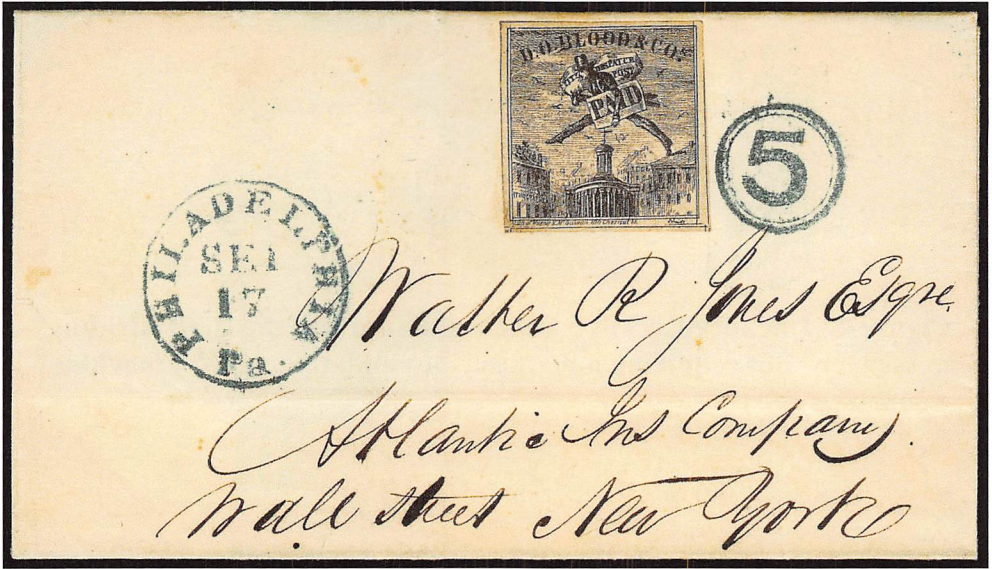 D.O. BLOOD & CO'S
CITY DISPATCH
POST
PAID
5
PHILADELPHIA
SEP
17
Pa.
Walter R Jones Esqre.
Atlantic Ins Company.
Wall Street New York